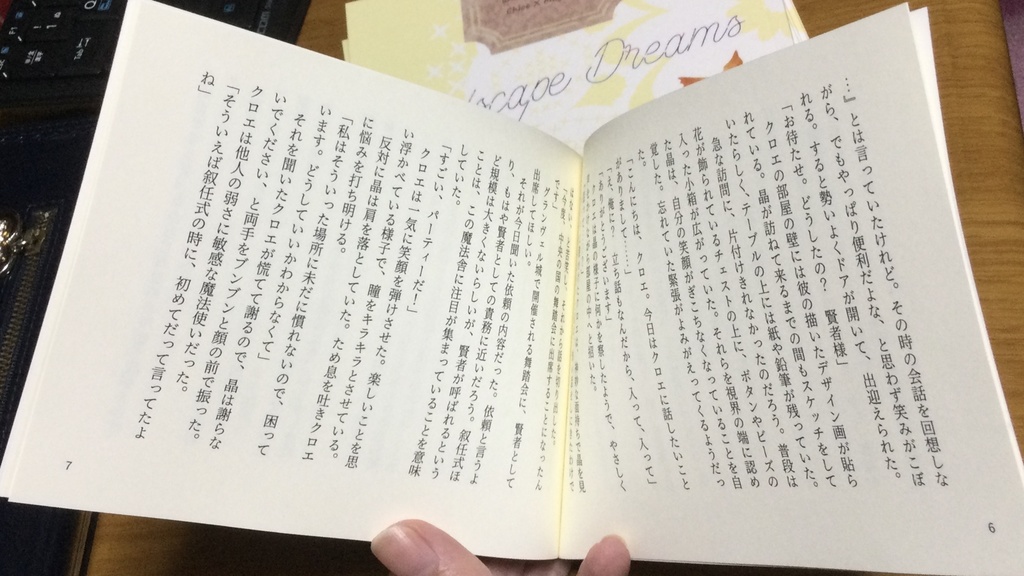 Escape Dreams
…』とは言っていたけれど。その時の会話を回想しな
がら、でもやっぱり便利だよな、と思わず笑みがこぼ
れる。すると勢いよくドアが開いて、出迎えられた。
「お待たせ。どうしたの? 賢者様」
クロエの部屋の壁には彼の描いたデザイン画が貼ら
れている。晶が訪ねて来るまでの間もスケッチをして
いたらしく、テーブルの上には紙や鉛筆が残っていた。
急な訪問に、片付けきれなかったのだろう。普段は
花が飾られているチェストの上に、ボタンやビーズの
入った小箱が広がっていた。それらを視界の端に認め
た晶は、自分の笑顔がぎこちなくなっていることを自
覚した。忘れていた緊張がよみがえってくるようだっ
た。
「こんにちは、クロエ。今日はクロエに話したいこと
がありまして……」
「え、俺に? 立ち話もなんだから、入って、入って」
「ありがとうございます」
クロエは晶の様子に何かを察したようで、やさしく
部屋の中へと招いた。
「今度、中央の国の舞踏会に出席することになったん
です」
グランヴェル城で開催される舞踏会に、賢者として
出席してほしい。
それが今日聞いた依頼の内容だった。依頼と言うよ
り、もはや賢者としての責務に近いだろう。叙任式ほ
ど規模は大きくないらしいが、賢者が呼ばれるという
ことは、この魔法舎に注目が集まっていることを意味
していた。
「すごい、パーティーだ!」
クロエは一気に笑顔を弾けさせた。楽しいことを思
い浮かべている様子で、瞳をキラキラとさせている。
反対に晶は肩を落としていた。ため息を吐きクロエ
に悩みを打ち明ける。
「私はそういった場所に未だに慣れないので、困って
います。どうしていいかわからなくて」
それを聞いたクロエが慌てて謝るので、晶は謝らな
いでください、と両手をブンブンと顔の前で振った。
クロエは他人の弱さに敏感な魔法使いだった。
「そういえば叙任式の時に、初めてだって言ってたよ
ね」
6
7